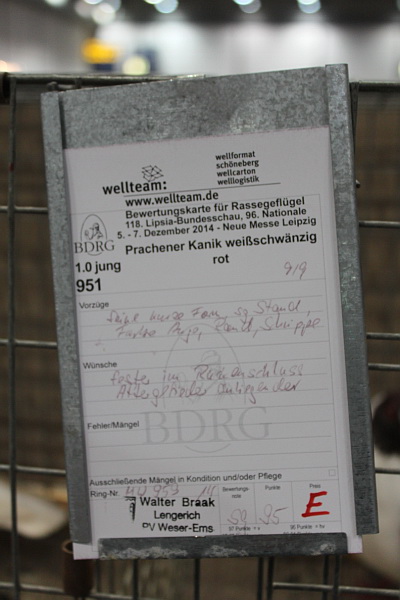 wellteam:
wellformat
schöneberg
wellcarton
welllogistik
www.wellteam.de
Bewertungskarte für Rassegeflügel
118. Lipsia-Bundesschau, 96. Nationale
5. - 7. Dezember 2014 - Neue Messe Leipzig
BDRG
Prachener Kanik weißschwänzig
rot
1.0 jung
951
Vorzüge
kurze Form, Stand,
Farbe
Wünsche
fester im Rückenschluss
anliegender
Fehler/Mängel
BDRG
Ausschließende Mängel in Kondition und/oder Pflege
Ring-Nr.
Bewertungs
note
Punkte
Preis
95
E
Walter Braak
Lengerich
PV Weser-Ems
97 Punkte =
96 Punkte = hv